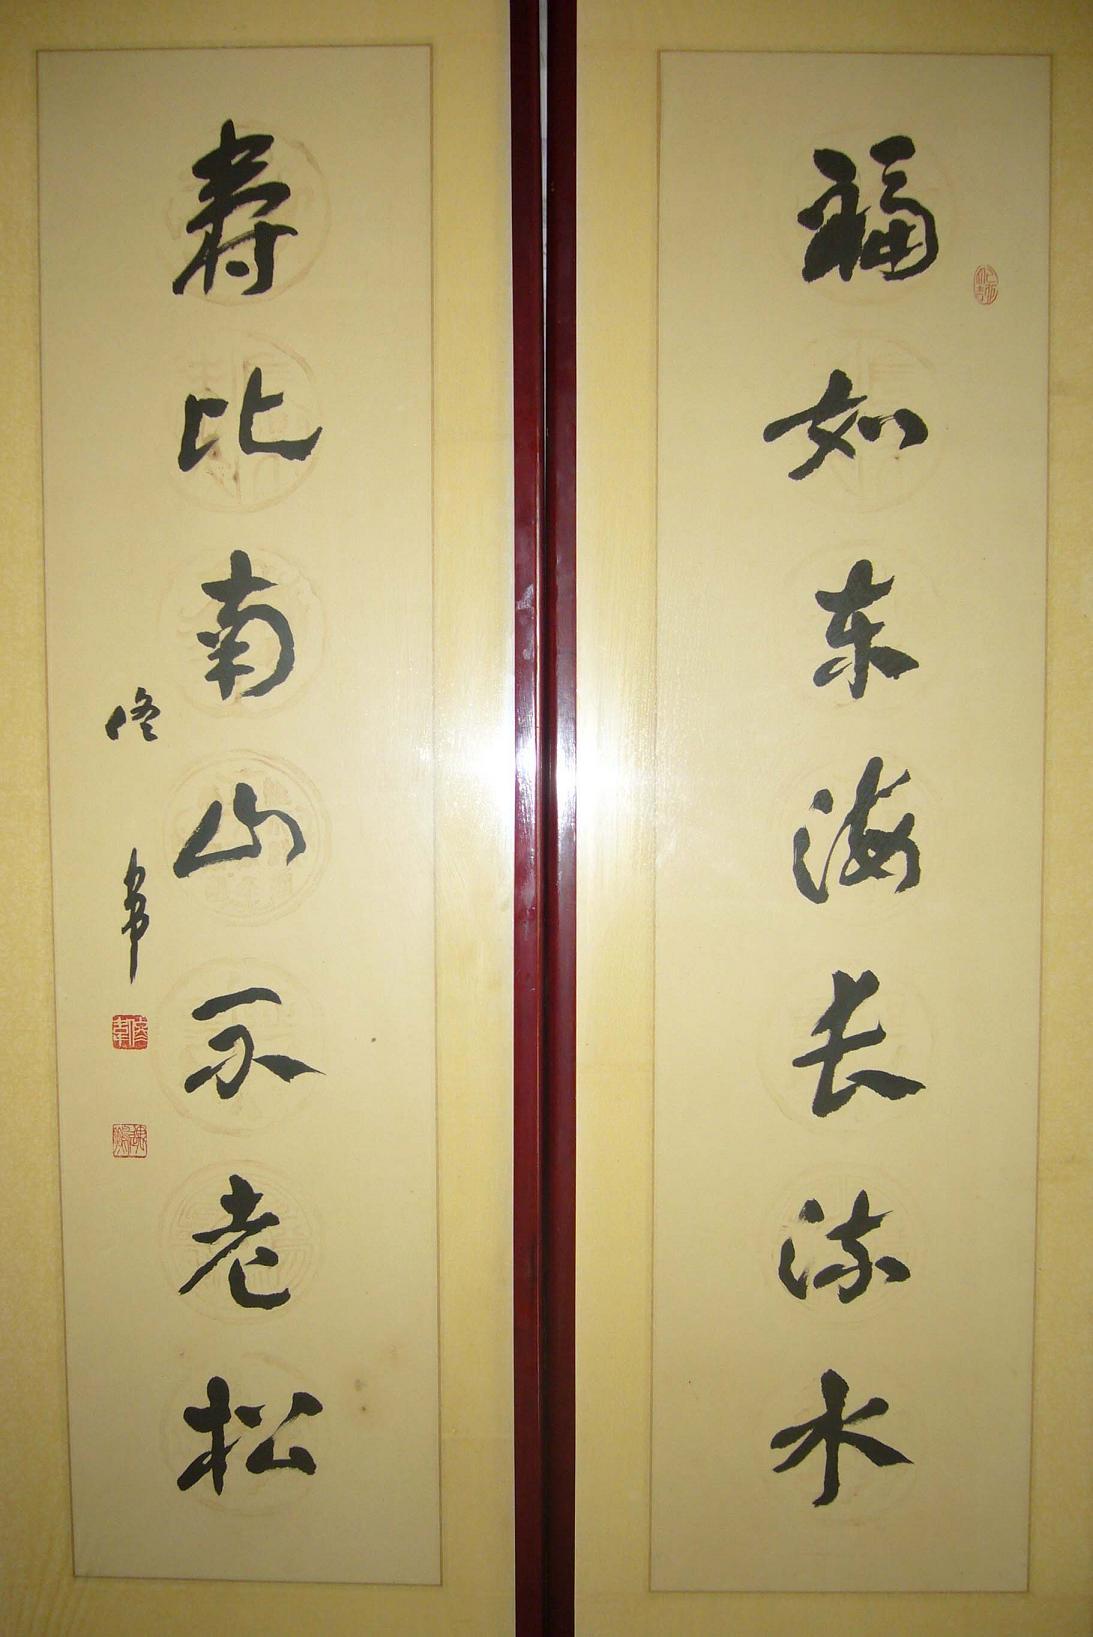 福如东海长流水
寿比南山不老松